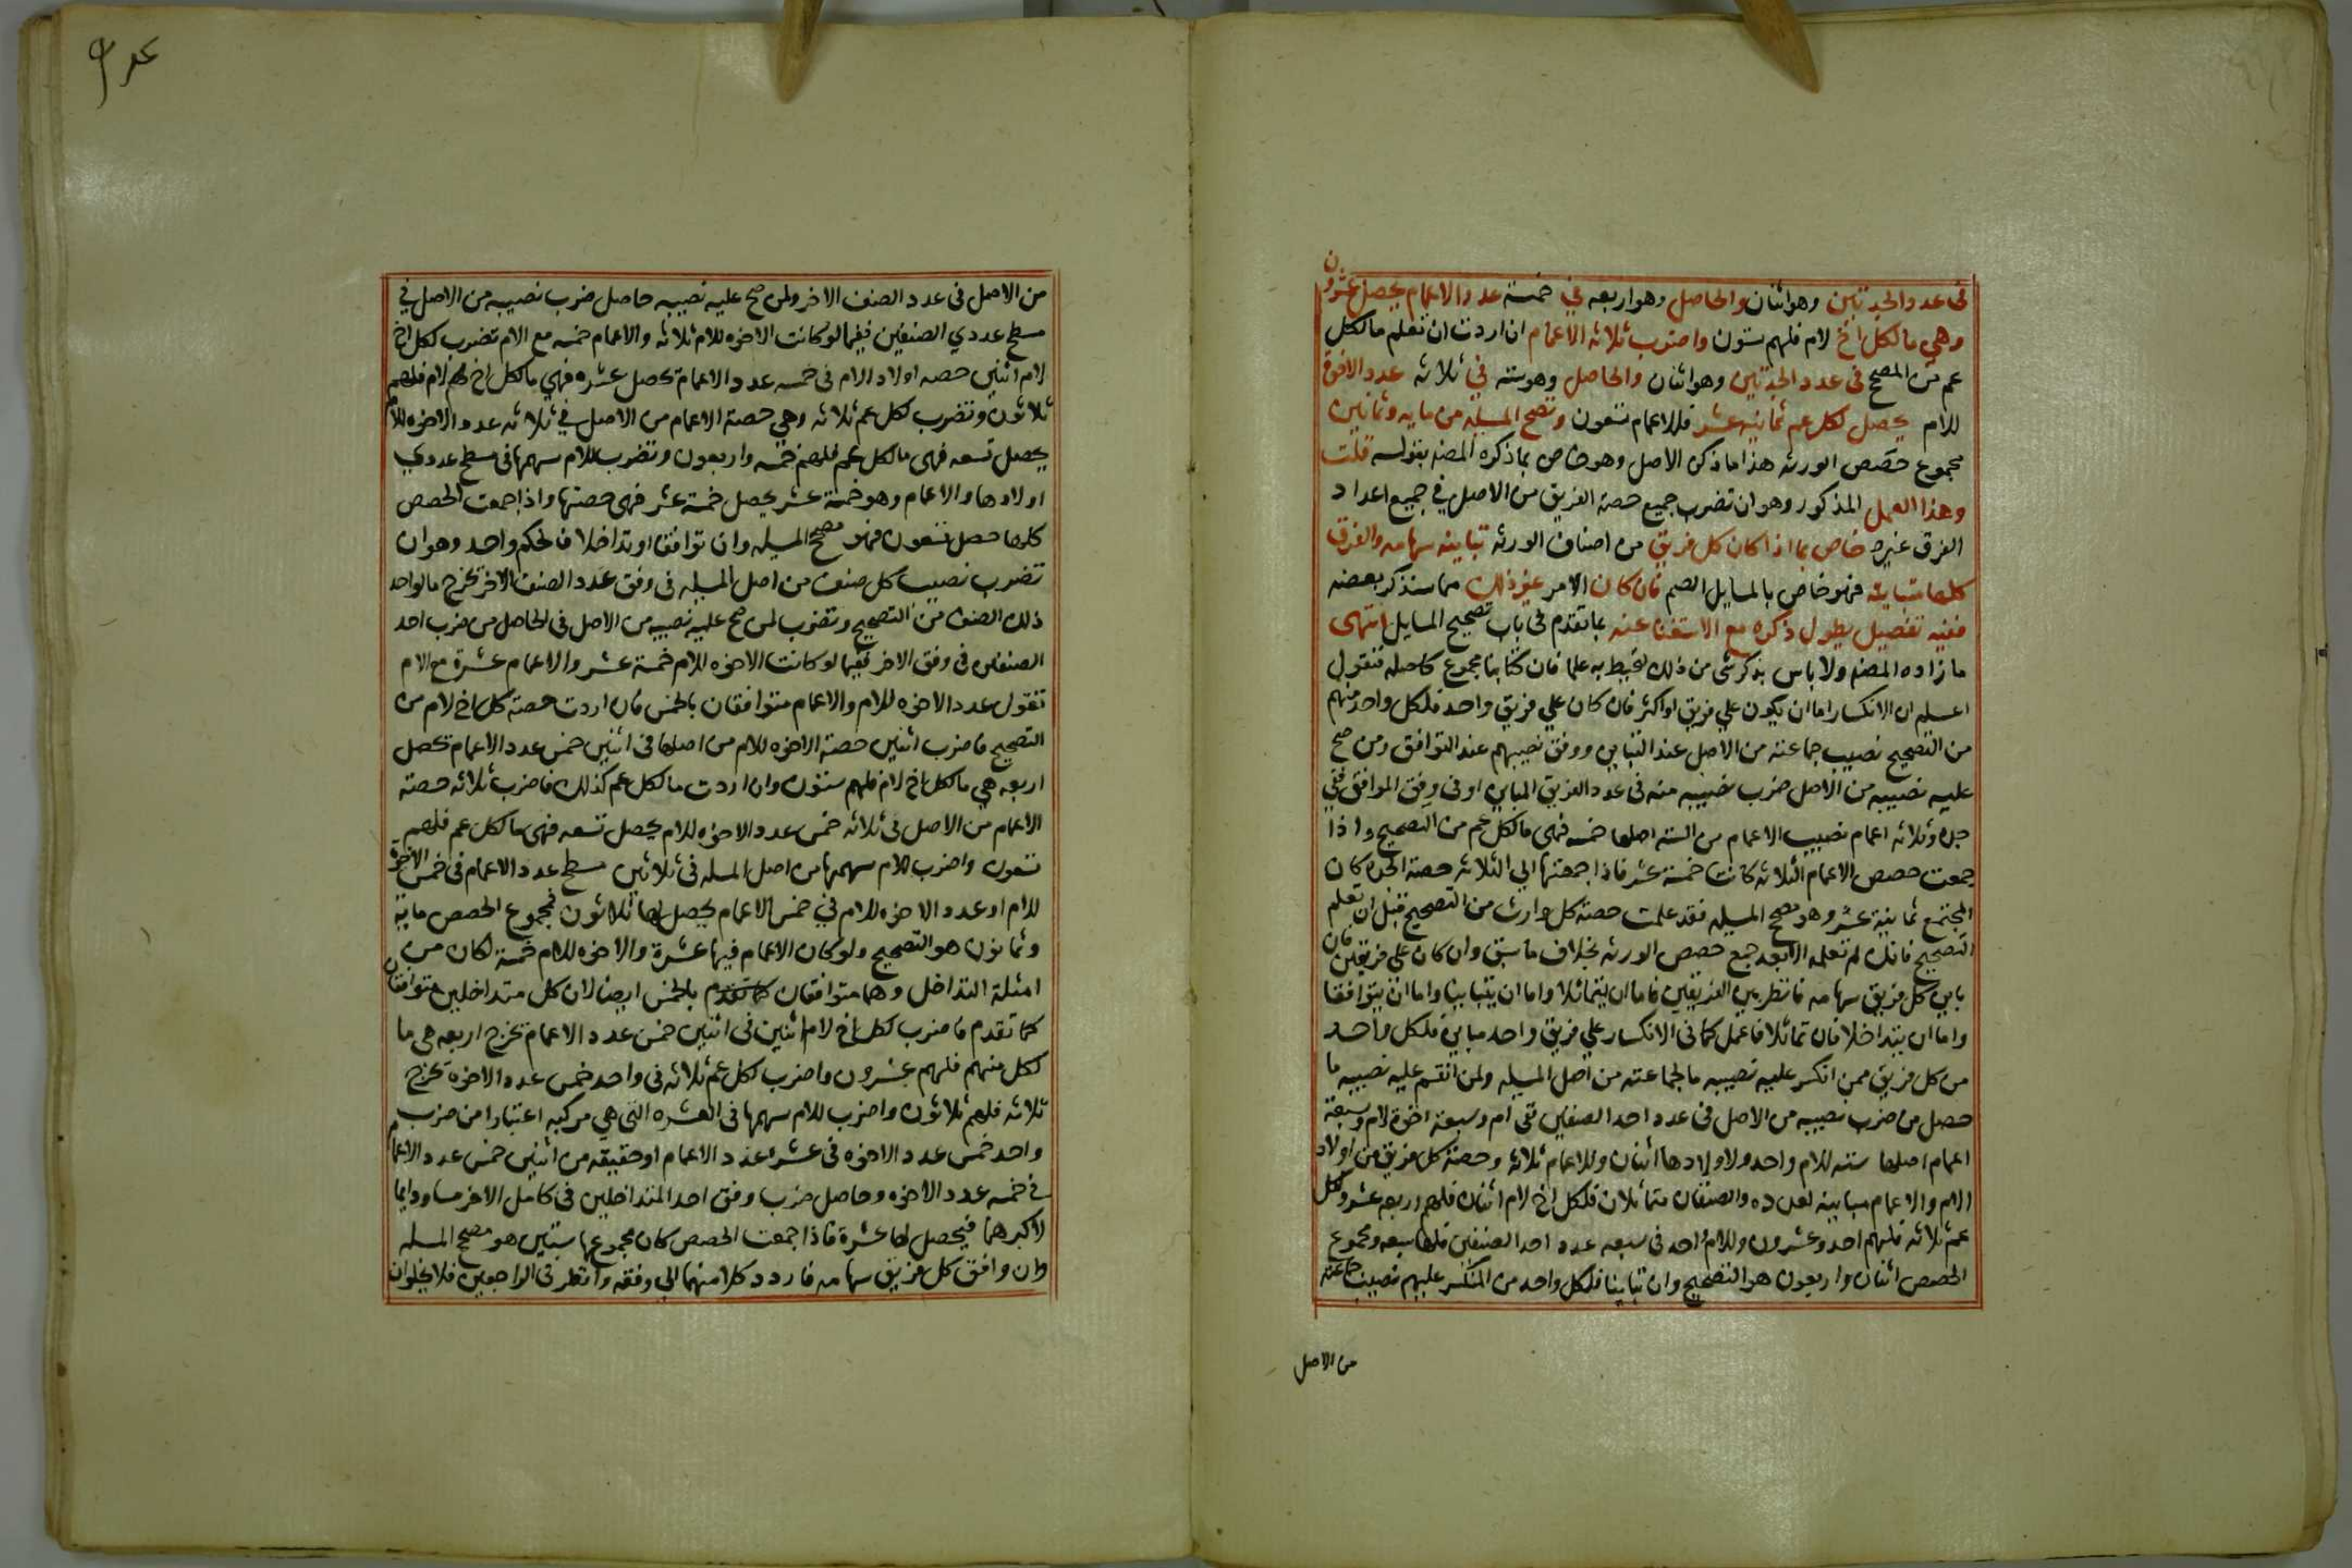 في عدد الجدتين وهو اثنان والحاصل وهو اربعه في خمسة عدد الاعمام يحصل عشرون
وهي ما لكل اخ لام فلهم ستون واضرب ثلاثه الاعمام ان اردت ان تعلم ما لكل
عم من المصح في عدد الجدتين وهو اثنان والحاصل وهو سته في ثلاثه عدد الاخوة
للام يحصل لكل عم ثمانية عشر فللاعمام تسعون وتصح المسيله من مايه وثمانين
مجموع حصص الورثه هذا ما ذكر في الاصل وهو خاص بما ذكره المصنف بقوله قلت
وهذا العمل المذكور وهو ان تضرب جميع حصة الفريق من الاصل في جميع اعداد
الفرق غيره خاص بما اذا كان كل فريق من اصناف الورثه تباينه سهامه والفرق
كلها متباينه فهو خاص بالمسايل الصم فان كان الامر غير ذلك مما سنذكر بعضه
ففيه تفصيل يطول ذكره مع الاستغنا عنه بما تقدم في باب تصحيح المسايل انتهى
ما زاده المصنف ولا باس بذكر شى من ذلك لتحيط به علما فان كتابنا مجموع كاصله فنقول
اعلم ان الانكسار اما ان يكون علي فريق او اكثر فان كان علي فريق واحد فلكل واحد منهم
من التصحيح نصيب جماعته من الاصل عند التباين ووفق نصيبهم عند التوافق ومن صح
عليه نصيبه من الاصل ضرب نصيبه منه في عدد الفريق المباين او في وفق الموافق ففي
جدة وثلاثه اعمام نصيب الاعمام من السته اصلها خمسه فهى ما لكل عم من التصحيح واذا
جمعت حصص الاعمام الثلاثه كانت خمسة عشر فاذا جمعتها الى الثلاثه حصة الجده كان
المجتمع ثمانية عشر وهو مصح المسيله فقد علمت حصة كل وارث من التصحيح قبل ان تعلم
التصحيح فانك لم تعلمه الا بعد جمع حصص الورثه بخلاف ما سبق وان كان على فريقين فان
باين كل فريق سهامه فانظر بين الفريقين فاما ان يتماثلا واما ان يتباينا واما ان يتوافقا
واما ان يتداخلا فان تماثلا فاعمل كما في الانكسار علي فريق واحد مباين فلكل واحد
من كل فريق ممن انكسر عليه نصيبه ما لجماعته من اصل المسيله ولمن انقسم عليه نصيبه ما
حصل من ضرب نصيبه من الاصل في عدد احد الصنفين ففى ام وسبعة اخوة لام وسبعة
اعمام اصلها سته للام واحد ولاولادها اثنان وللاعمام ثلاثه وحصة كل فريق من اولاد
الام والاعمام مباينه لعدده والصنفان متماثلان فلكل اخ لام اثنان فلهم اربعه عشر ولكل
عم ثلاثه فلهم احد وعشرون وللام واحد في سبعه عدد احد الصنفين فلها سبعه ومجموع
الحصص اثنان واربعون هو التصحيح وان تباينا فلكل واحد من المنكسر عليهم نصيب جماعته
من الاصل
عدد
من الاصل في عدد الصنف الاخر ولمن صح عليه نصيبه حاصل ضرب نصيبه من الاصل في
مسطح عددي الصنفين ففيما لو كانت الاخوه للام ثلاثه والاعمام خمسه مع الام تضرب لكل اخ
لام اثنين حصه اولاد الام في خمسه عدد الاعمام تحصل عشره فهي ما لكل اخ لام فلهم
ثلاثون وتضرب لكل عم ثلاثه وهي حصة الاعمام من الاصل في ثلاثه عدد الاخوه للام
يحصل تسعه فهى ما لكل عم فلهم خمسه واربعون وتضرب للام سهمها في مسطح عددي
اولادها والاعمام وهو خمسة عشر يحصل خمسة عشر فهى حصتها واذا جمعت الحصص
كلها حصل تسعون فهو مصح المسيله وان توافقا او تداخلا فالحكم واحد وهو ان
تضرب نصيب كل صنف من اصل المسيله في وفق عدد الصنف الاخر تخرج ما لواحد
ذلك الصنف من التصحيح وتضرب لمن صح عليه نصيبه من الاصل في الحاصل من ضرب احد
الصنفين في وفق الاخر ففيما لو كانت الاخوه للام خمسة عشر والاعمام عشرة مع الام
تقول عدد الاخوه للام والاعمام متوافقان بالخمس فان اردت حصة كل اخ لام من
التصحيح فاضرب اثنين حصة الاخوه للام من اصلها في اثنين خمس عدد الاعمام تحصل
اربعه هي ما لكل اخ لام فلهم ستون وان اردت ما لكل عم كذلك فاضرب ثلاثه حصة
الاعمام من الاصل في ثلاثه خمس عدد الاخوه للام يحصل تسعه فهى ما لكل عم فلهم
تسعون واضرب للام سهمها من اصل المسله في ثلاثين مسطح عدد الاعمام في خمس الاخوة
للام او عدد الاخوه للام في خمس الاعمام يحصل لها ثلاثون فمجموع الحصص ماية
وثمانون هو التصحيح ولو كان الاعمام فيها عشرة والاخوه للام خمسة لكان من
امثلة التداخل وهما متوافقان بالخمس ايضا لان كل متداخلين متوافقان
كما تقدم فاضرب لكل اخ لام اثنين في اثنين خمس عدد الاعمام تخرج اربعه هى ما
لكل منهم فلهم عشرون واضرب لكل عم ثلاثه في واحد خمس عدد الاخوه تخرج
ثلاثه فلهم ثلاثون واضرب للام سهمها في العشره التي هي مركبه اعتبارا من ضرب
واحد خمس عدد الاخوه في عشرة عدد الاعمام او حقيقه من اثنين خمس عدد الاعمام
في خمسه عدد الاخوه وحاصل ضرب وفق احد المتداخلين في كامل الاخر مساو دايما
لاكبرهما فيحصل لها عشرة فاذا جمعت الحصص كان مجموعها ستين هو مصح المسله
وان وافق كل فريق سهامه فاردد كلا منهما الى وفقه وانظر في الراجعين فلا يخلوان